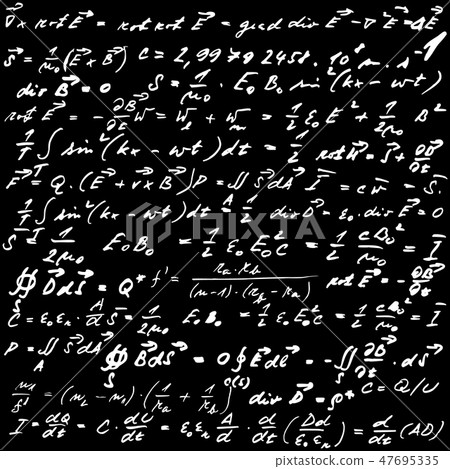 ∇⃗ x rot E⃗ = rot rot E⃗ = grad div E⃗ − ∇² E⃗ = ΔE⃗
S⃗ = 1/μ₀ (E⃗ x B⃗) C = 2,99792458 · 10⁸ m · s⁻¹
div B⃗ = 0 S⃗ = 1/μ₀ · E₀ B₀ sin²(kx − wt)
rot E⃗ = − ∂B⃗/∂t = 1/2 ε₀ E² + 1/2μ₀ B²
1/T ∫ sin²(kx − wt) dt = 1/2 rot H⃗ = J⃗ + ∂D⃗/∂t
F⃗ = Q · (E⃗ + v⃗ x B⃗) P = ∬ S⃗ dA⃗ I⃗ = c w⃗ = S⃗
1/T ∫ sin²(kx − wt) dt = 1/2 div D⃗ = ε₀ · div E⃗ = 0
S⃗ = 1/2μ₀ E₀ B₀ = 1/2 ε₀ E₀² c = 1/2 c B₀²/μ₀ = I
∯ D⃗ dS⃗ = Q* f' = rₐ · r_b / (n−1) · (r_b − rₐ) rot E⃗ = − ∂B⃗/∂t
C = ε₀ εᵣ · A/d S⃗ = 1/2μ₀ E₀ B₀ = 1/2 ε₀ E₀² c = 1/2 c B₀²/μ₀ = I
P = ∬ S⃗ dA⃗ ∯ B⃗ dS⃗ = 0 ∮ E⃗ dl⃗ = − ∬ ∂B⃗/∂t · dS⃗
n₁/f' = (n₂ − n₁) · (1/rₐ + 1/r_b) div D⃗ = ρ* C = Q/U
I = dQ/dt = C · dU/dt = ε₀ εᵣ A/d · d/dt (Dd/ε₀ εᵣ) = d/dt (AD)
PIXTA
47695335